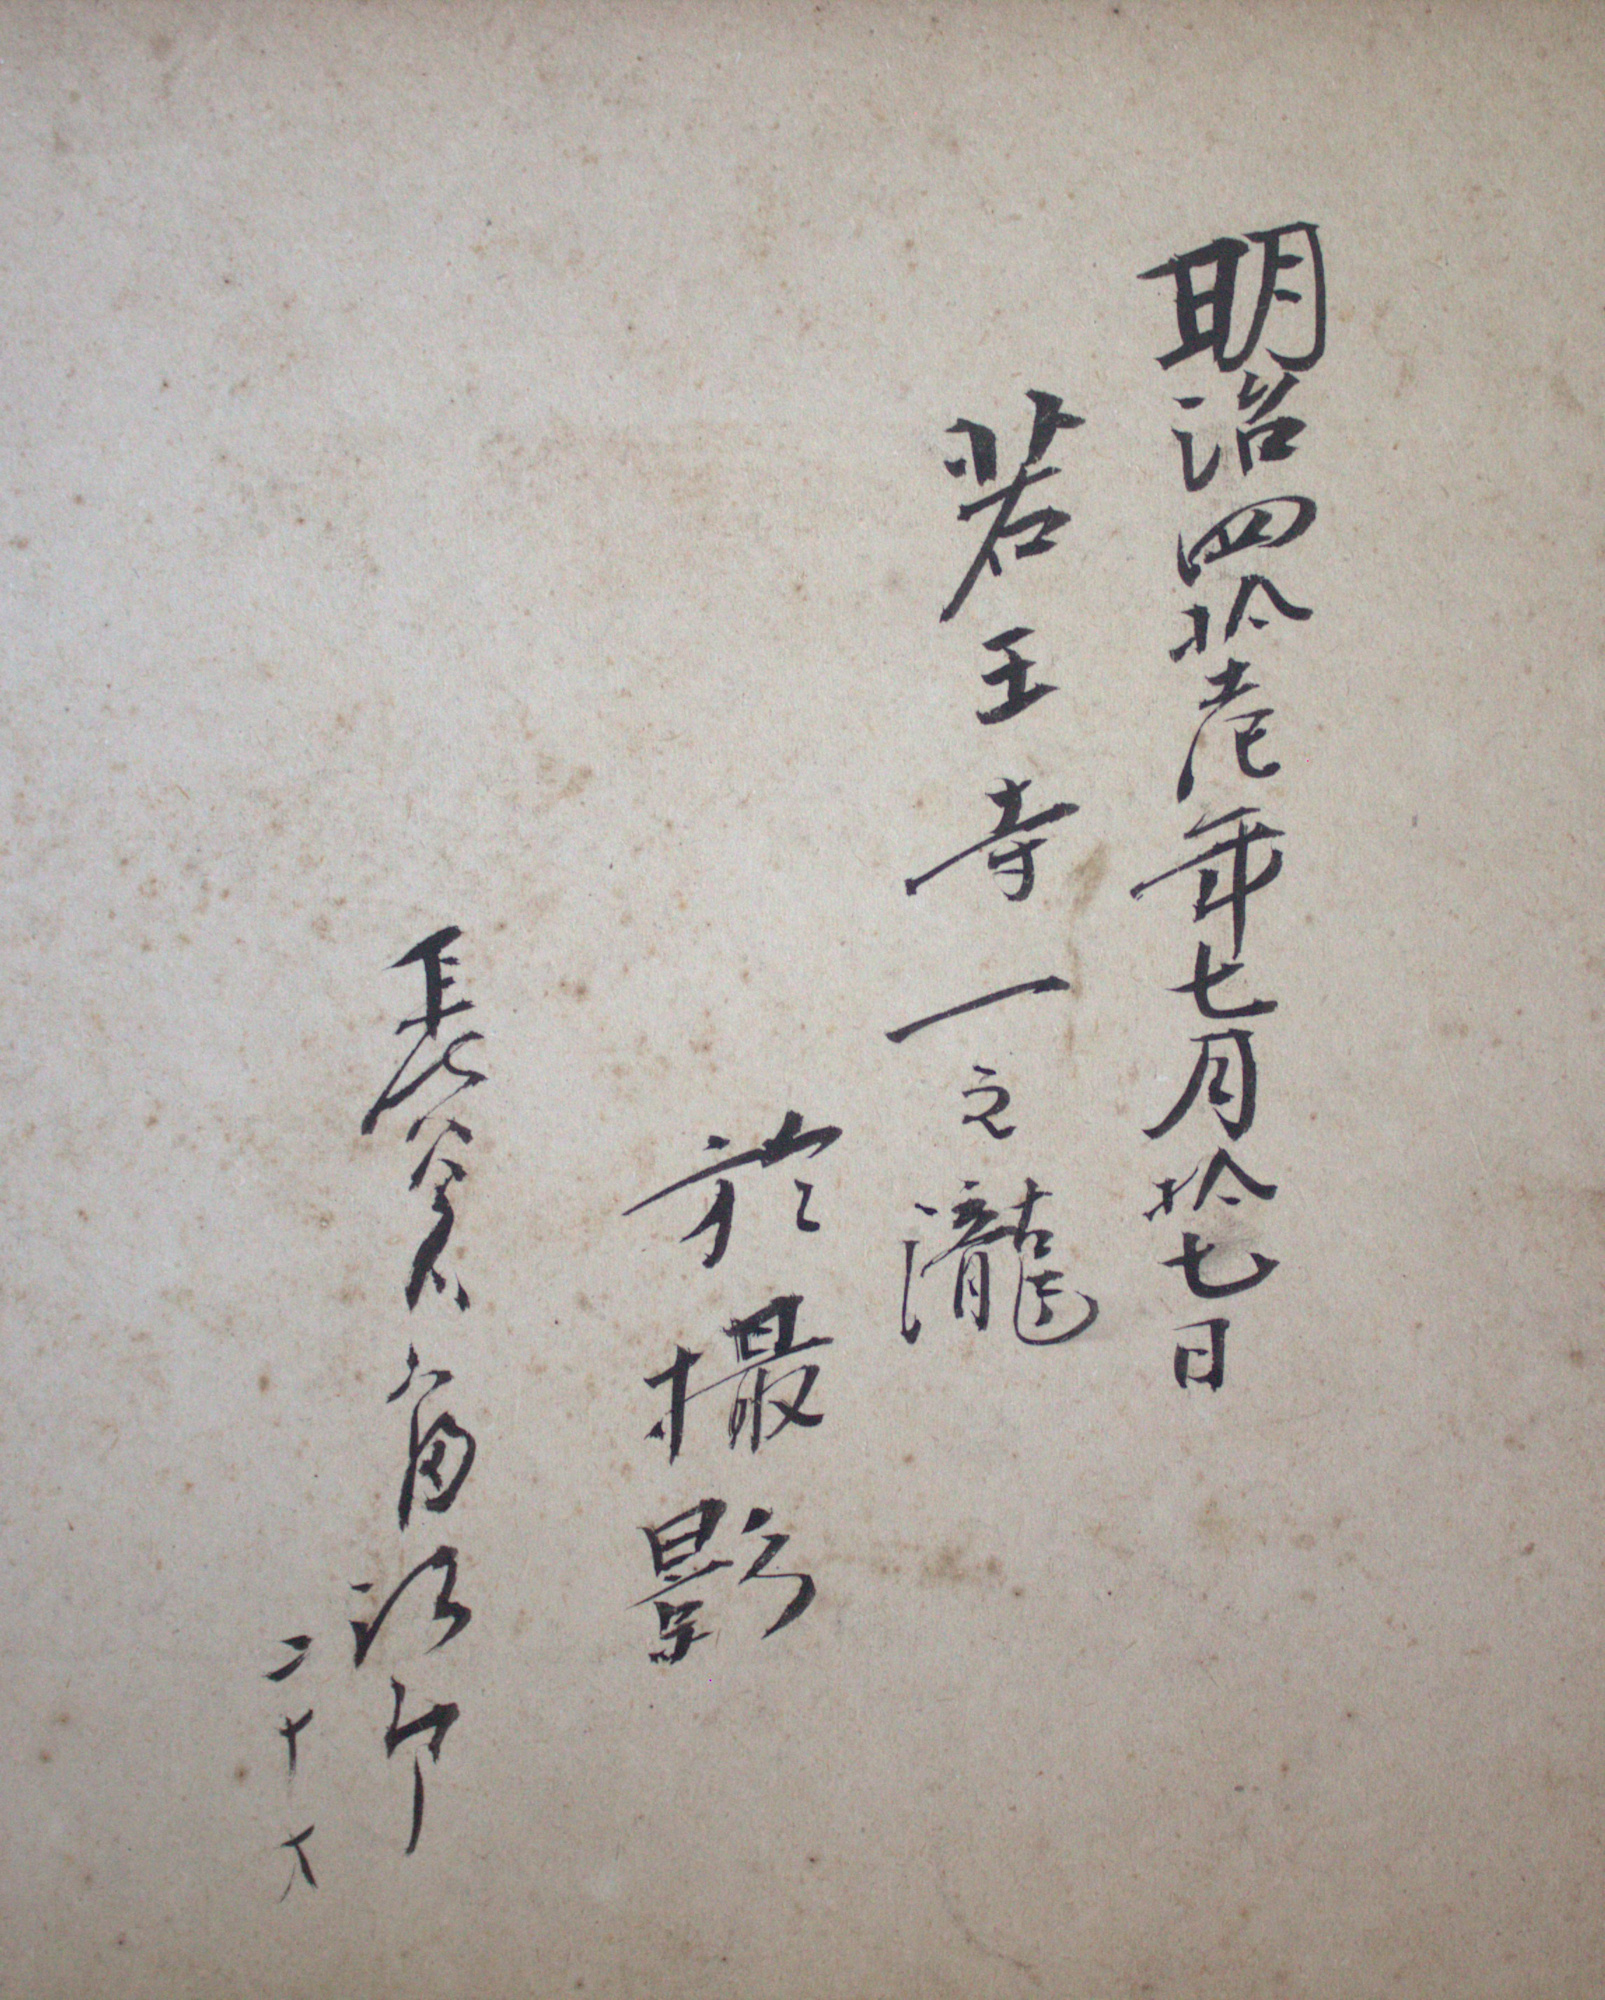 明治四拾壱年七月拾七日
若王寺一之瀧
於撮影
長谷 角治郎
二十